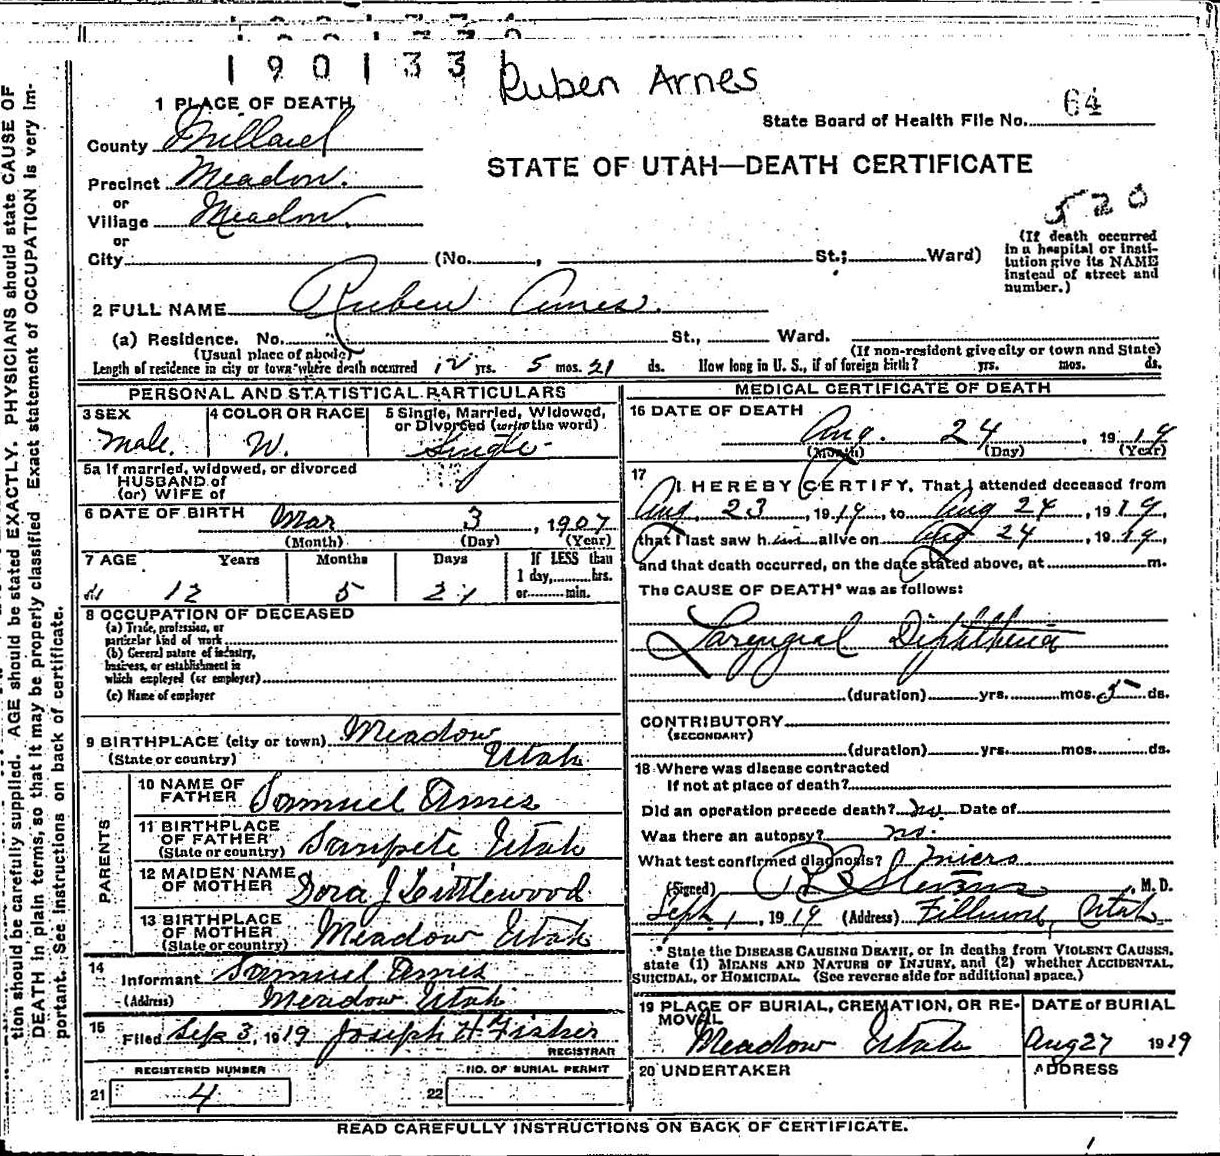 190133
Ruben Arnes
1 PLACE OF DEATH
State Board of Health File No. 64
County Millard
STATE OF UTAH—DEATH CERTIFICATE
Precinct Meadow.
or
Village Meadow
520
or
City (No. , St.; Ward)
(If death occurred in a hospital or institution give its NAME instead of street and number.)
2 FULL NAME Ruben Ames.
(a) Residence. No. St., Ward.
(Usual place of abode) (If non-resident give city or town and State)
Length of residence in city or town where death occurred 12 yrs. 5 mos. 21 ds. How long in U. S., if of foreign birth? yrs. mos. ds.
PERSONAL AND STATISTICAL PARTICULARS
3 SEX 4 COLOR OR RACE 5 Single, Married, Widowed,
or Divorced (write the word)
Male. W. Single
5a If married, widowed, or divorced
HUSBAND of
(or) WIFE of
6 DATE OF BIRTH Mar 3, 1907
(Month) (Day) (Year)
7 AGE Years Months Days If LESS than
1 day, hrs.
or min.
12 5 21
8 OCCUPATION OF DECEASED
(a) Trade, profession, or
particular kind of work
(b) General nature of industry,
business, or establishment in
which employed (or employer)
(c) Name of employer
9 BIRTHPLACE (city or town) Meadow
(State or country) Utah
PARENTS
10 NAME OF
FATHER Samuel Ames
11 BIRTHPLACE
OF FATHER Sanpete Utah
(State or country)
12 MAIDEN NAME
OF MOTHER Dora J Littlewood
13 BIRTHPLACE
OF MOTHER Meadow Utah
(State or country)
14
Informant Samuel Ames
(Address) Meadow Utah
15
Filed Sep 3, 1919 Joseph H Fisher
REGISTRAR
REGISTERED NUMBER NO. OF BURIAL PERMIT
21 4 22
MEDICAL CERTIFICATE OF DEATH
16 DATE OF DEATH
Aug. 24, 1919
(Month) (Day) (Year)
17
I HEREBY CERTIFY, That I attended deceased from
Aug. 23, 1919, to Aug 24, 1919,
that I last saw him alive on Aug 24, 1919,
and that death occurred, on the date stated above, at m.
The CAUSE OF DEATH* was as follows:
Laryngial Diphtheria
(duration) yrs. mos. 5 ds.
CONTRIBUTORY
(SECONDARY)
(duration) yrs. mos. ds.
18 Where was disease contracted
If not at place of death?
Did an operation precede death? no. Date of
Was there an autopsy? no.
What test confirmed diagnosis?
(Signed) Stevens, M. D.
Sept. 1, 1919 (Address) Fillmore, Utah
* State the DISEASE CAUSING DEATH, or in deaths from VIOLENT CAUSES,
state (1) MEANS AND NATURE OF INJURY, and (2) whether ACCIDENTAL,
SUICIDAL, or HOMICIDAL. (See reverse side for additional space.)
19 PLACE OF BURIAL, CREMATION, OR RE-
MOVAL
Meadow Utah
DATE of BURIAL
Aug 27 1919
20 UNDERTAKER
ADDRESS
READ CAREFULLY INSTRUCTIONS ON BACK OF CERTIFICATE.
tion should be carefully supplied. AGE should be stated EXACTLY. PHYSICIANS should state CAUSE OF
DEATH in plain terms, so that it may be properly classified. Exact statement of OCCUPATION is very im-
portant. See instructions on back of certificate.